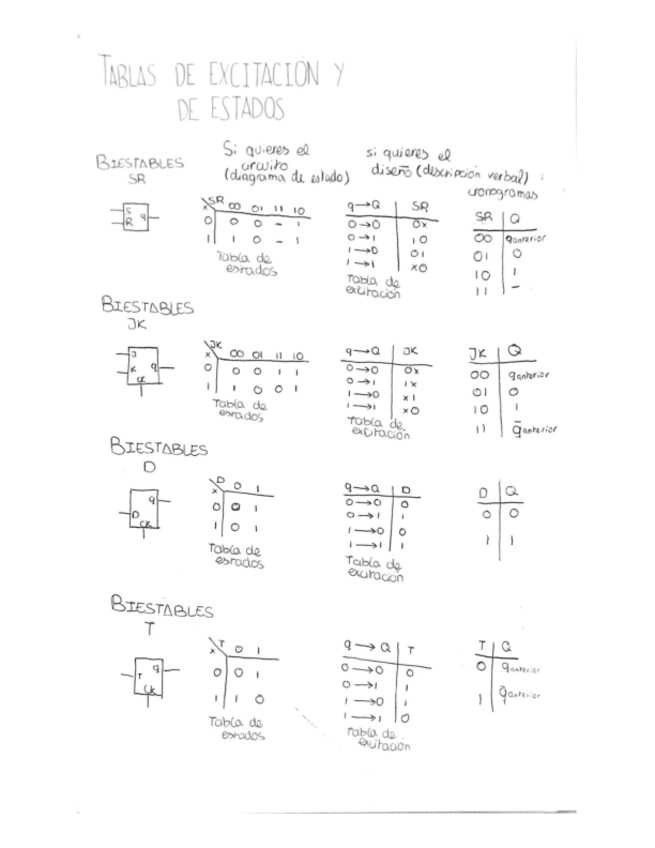 TABLAS DE EXCITACIÓN Y
DE ESTADOS
BIESTABLES
SR
Si quieres el
circuito
(diagrama de estado)
si quieres el
diseño (descripción verbal) :
cronogramas
S q
R
SR 00 01 11 10
x
0 0 0 - 1
1 1 0 - 1
Tabla de
estados
q→Q SR
0→0 0x
0→1 10
1→0 01
1→1 x0
Tabla de
excitación
SR Q
00 qanterior
01 0
10 1
11 -
BIESTABLES
JK
J
K q
CK
JK 00 01 11 10
x
0 0 0 1 1
1 1 0 0 1
Tabla de
estados
q→Q JK
0→0 0x
0→1 1x
1→0 x1
1→1 x0
Tabla de
excitación
JK Q
00 qanterior
01 0
10 1
11 q̄anterior
BIESTABLES
D
q
D
CK
D 0 1
x
0 0 1
1 0 1
Tabla de
estados
q→Q D
0→0 0
0→1 1
1→0 0
1→1 1
Tabla de
excitación
D Q
0 0
1 1
BIESTABLES
T
q
T
CK
T 0 1
x
0 0 1
1 1 0
Tabla de
estados
q→Q T
0→0 0
0→1 1
1→0 1
1→1 0
Tabla de
excitación
T Q
0 qanterior
1 q̄anterior